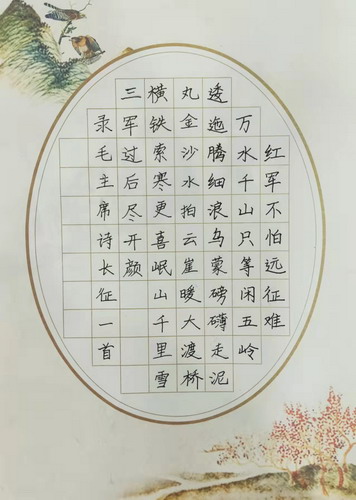 红军不怕远征难
万水千山只等闲五岭
透迤腾细浪乌蒙磅礴走泥
丸金沙水拍云崖暖大渡桥
横铁索寒更喜岷山千里雪
三军过后尽开颜
录毛主席诗长征一首